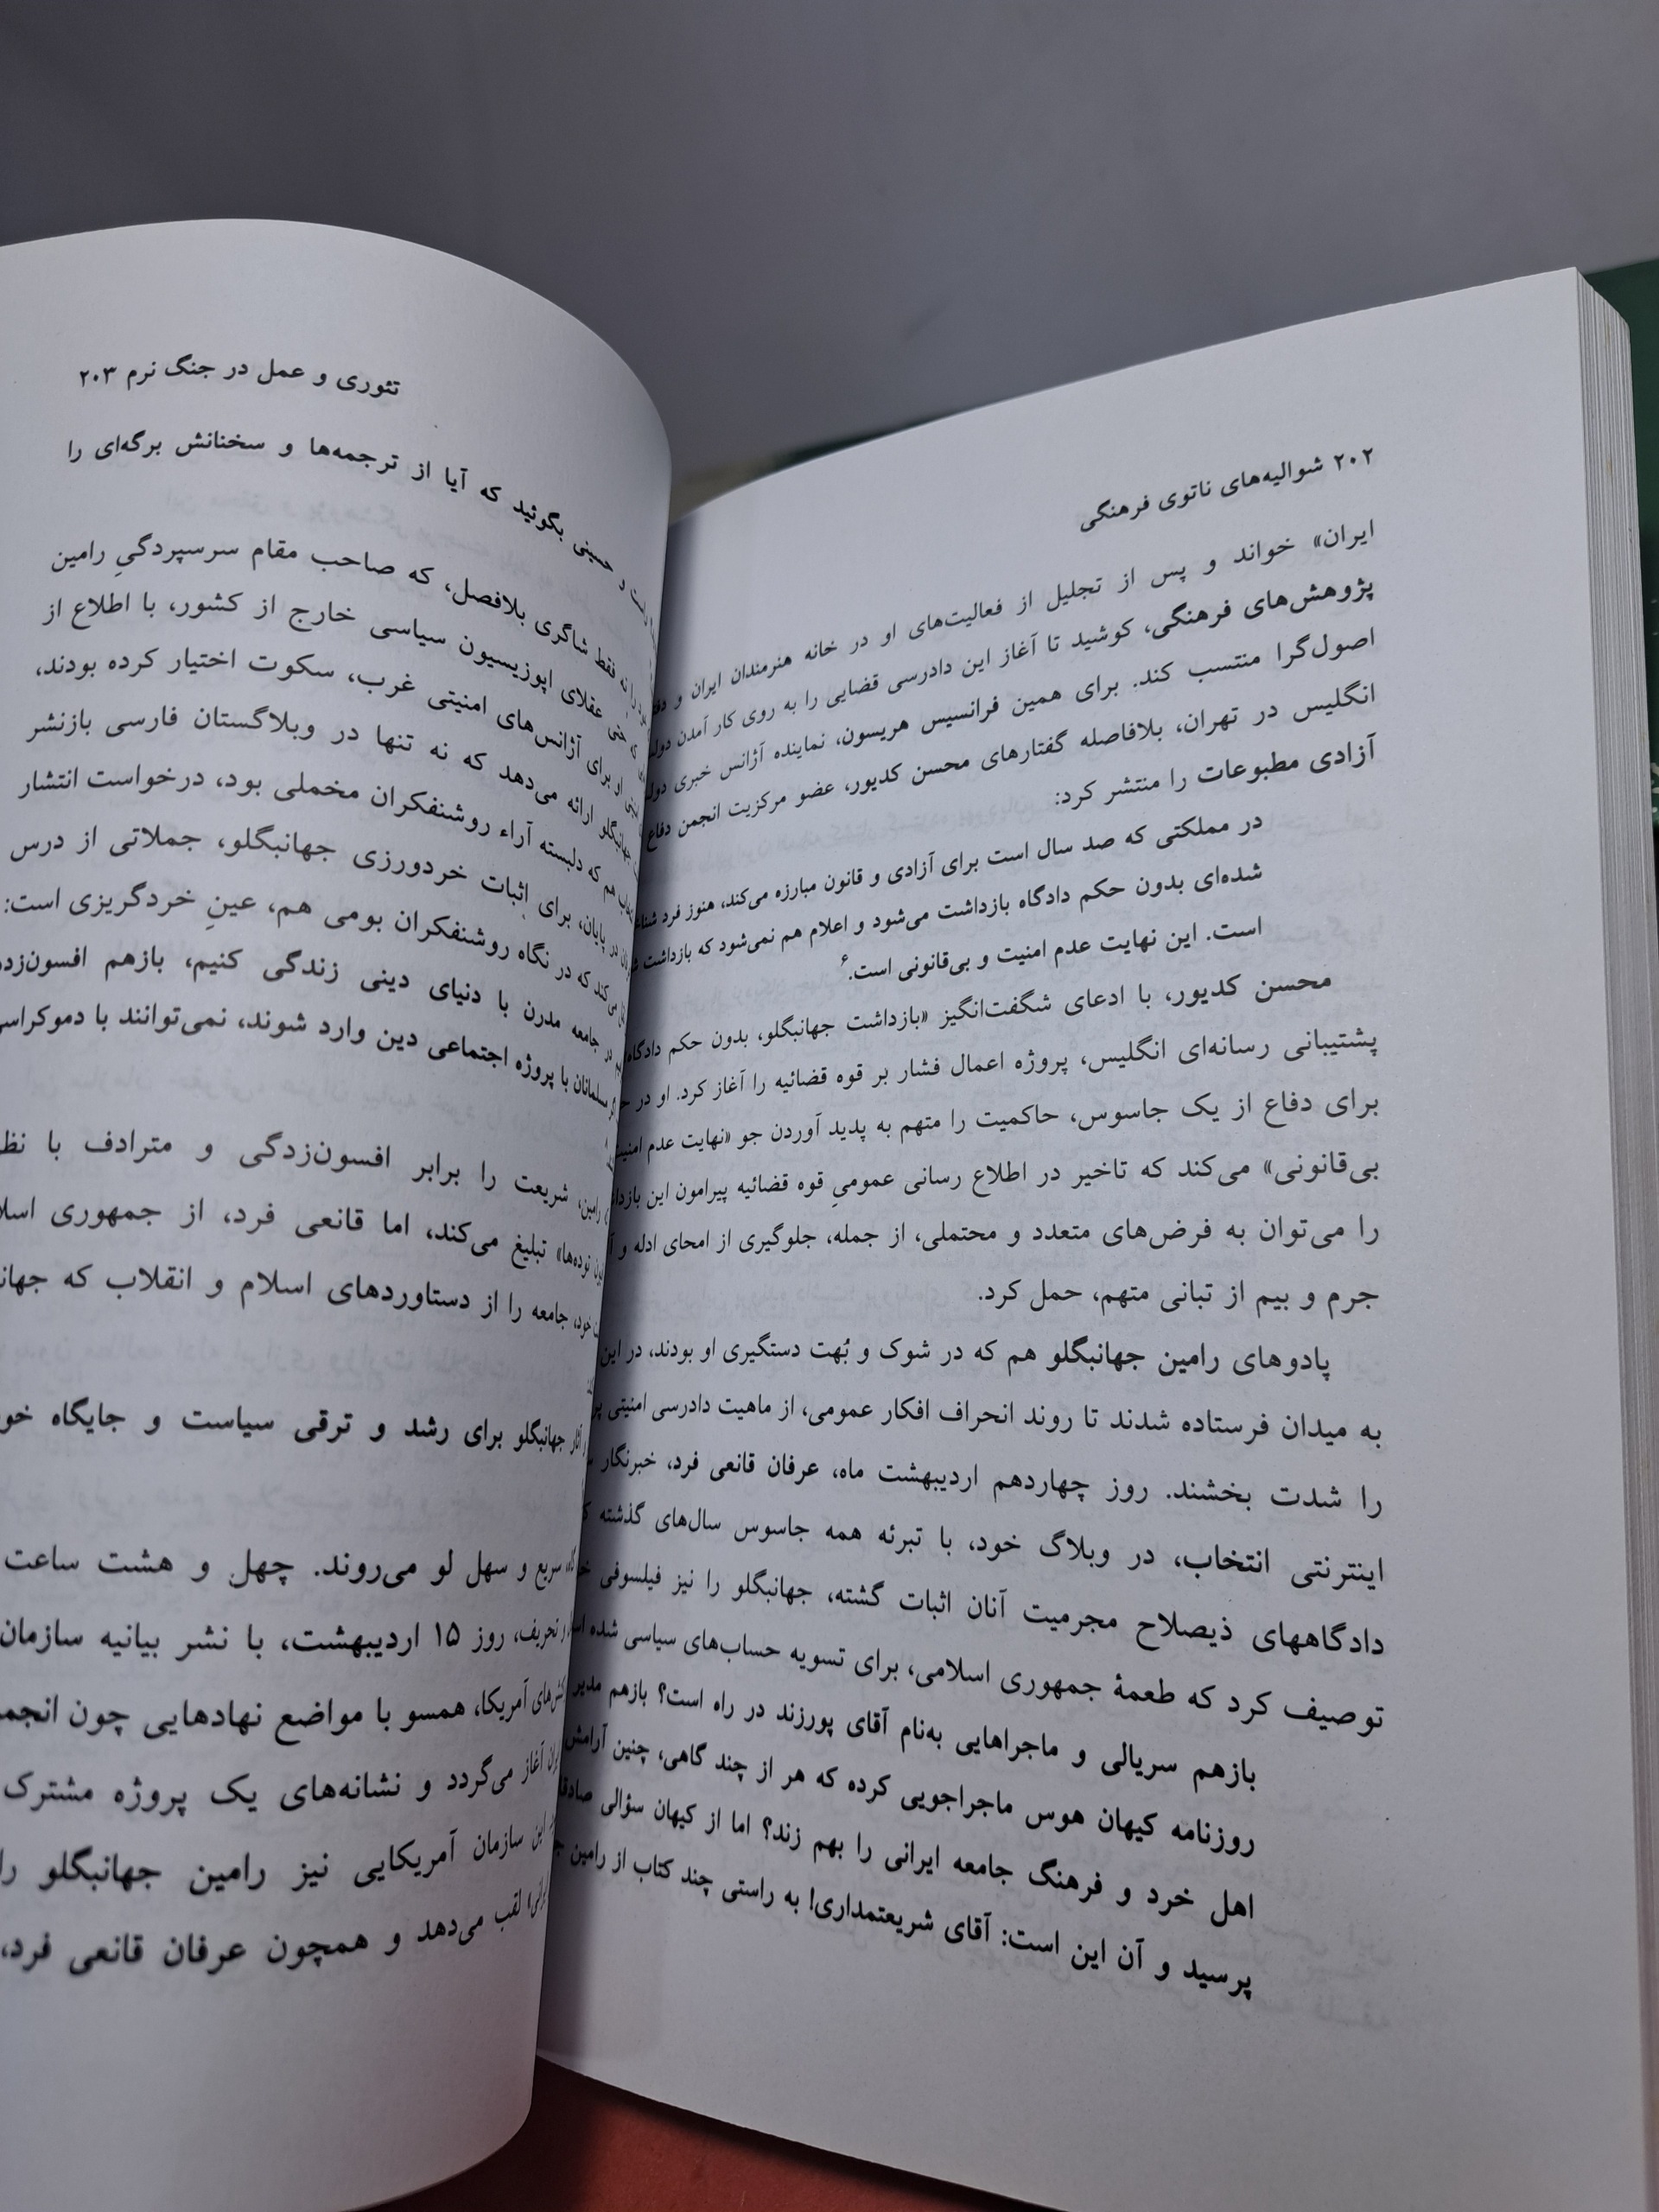 ۲۰۲ شوالیه‌های ناتوی فرهنگی
ایران» خواند و پس از تجلیل از فعالیت‌های او در خانه هنرمندان ایران و
پژوهش‌های فرهنگی، کوشید تا آغاز این دادرسی قضایی را به روی کار آمدن
اصول‌گرا منتسب کند. برای همین فرانسیس هریسون، نماینده آژانس خبری
انگلیس در تهران، بلافاصله گفتارهای محسن کدیور، عضو مرکزیت انجمن دفاع
آزادی مطبوعات را منتشر کرد:
در مملکتی که صد سال است برای آزادی و قانون مبارزه می‌کند، هنوز فرد
شده‌ای بدون حکم دادگاه بازداشت می‌شود و اعلام هم نمی‌شود که بازداشت
است. این نهایت عدم امنیت و بی‌قانونی است.۶
محسن کدیور، با ادعای شگفت‌انگیز «بازداشت جهانبگلو، بدون حکم دادگاه
پشتیبانی رسانه‌ای انگلیس، پروژه اعمال فشار بر قوه قضائیه را آغاز کرد. او در
برای دفاع از یک جاسوس، حاکمیت را متهم به پدید آوردن جو «نهایت عدم امنیت
بی‌قانونی» می‌کند که تاخیر در اطلاع رسانی عمومیِ قوه قضائیه پیرامون این
را می‌توان به فرض‌های متعدد و محتملی، از جمله، جلوگیری از امحای ادله و
جرم و بیم از تبانی متهم، حمل کرد.
پادوهای رامین جهانبگلو هم که در شوک و بُهت دستگیری او بودند، در این
به میدان فرستاده شدند تا روند انحراف افکار عمومی، از ماهیت دادرسی امنیتی
را شدت بخشند. روز چهاردهم اردیبهشت ماه، عرفان قانعی فرد، خبرنگار
اینترنتی انتخاب، در وبلاگ خود، با تبرئه همه جاسوس سال‌های گذشته
دادگاههای ذیصلاح مجرمیت آنان اثبات گشته، جهانبگلو را نیز فیلسوفی
توصیف کرد که طعمهٔ جمهوری اسلامی، برای تسویه حساب‌های سیاسی شده
بازهم سریالی و ماجراهایی به‌نام آقای پورزند در راه است؟ بازهم مدیر
روزنامه کیهان هوس ماجراجویی کرده که هر از چند گاهی، چنین آرامش
اهل خرد و فرهنگ جامعه ایرانی را بهم زند؟ اما از کیهان سؤالی
پرسید و آن این است: آقای شریعتمداری! به راستی چند کتاب از رامین
تئوری و عمل در جنگ نرم ۲۰۳
حسینی بگوئید که آیا از ترجمه‌ها و سخنانش برگه‌ای را
نه فقط شاگری بلافصل، که صاحب مقام سرسپردگیِ رامین
که حتی عقلای اپوزیسیون سیاسی خارج از کشور، با اطلاع از
او برای آژانس‌های امنیتی غرب، سکوت اختیار کرده بودند،
جهانبگلو ارائه می‌دهد که نه تنها در وبلاگستان فارسی بازنشر
هم که دلبسته آراء روشنفکران مخملی بود، درخواست انتشار
در پایان، برای اثبات خردورزی جهانبگلو، جملاتی از درس
می‌کند که در نگاه روشنفکران بومی هم، عینِ خردگریزی است:
در جامعه مدرن با دنیای دینی زندگی کنیم، بازهم
مسلمانان با پروژه اجتماعی دین وارد شوند، نمی‌توانند با
رامین، شریعت را برابر افسون‌زدگی و مترادف با
توده‌ها» تبلیغ می‌کند، اما قانعی فرد، از جمهوری
خود، جامعه را از دستاوردهای اسلام و انقلاب که
آثار جهانبگلو برای رشد و ترقی سیاست و جایگاه
سریع و سهل لو می‌روند. چهل و هشت ساعت
و تحریف، روز ۱۵ اردیبهشت، با نشر بیانیه سازمان
آمریکا، همسو با مواضع نهادهایی چون
آغاز می‌گردد و نشانه‌های یک پروژه مشترک
این سازمان آمریکایی نیز رامین جهانبگلو را
لقب می‌دهد و همچون عرفان قانعی فرد،